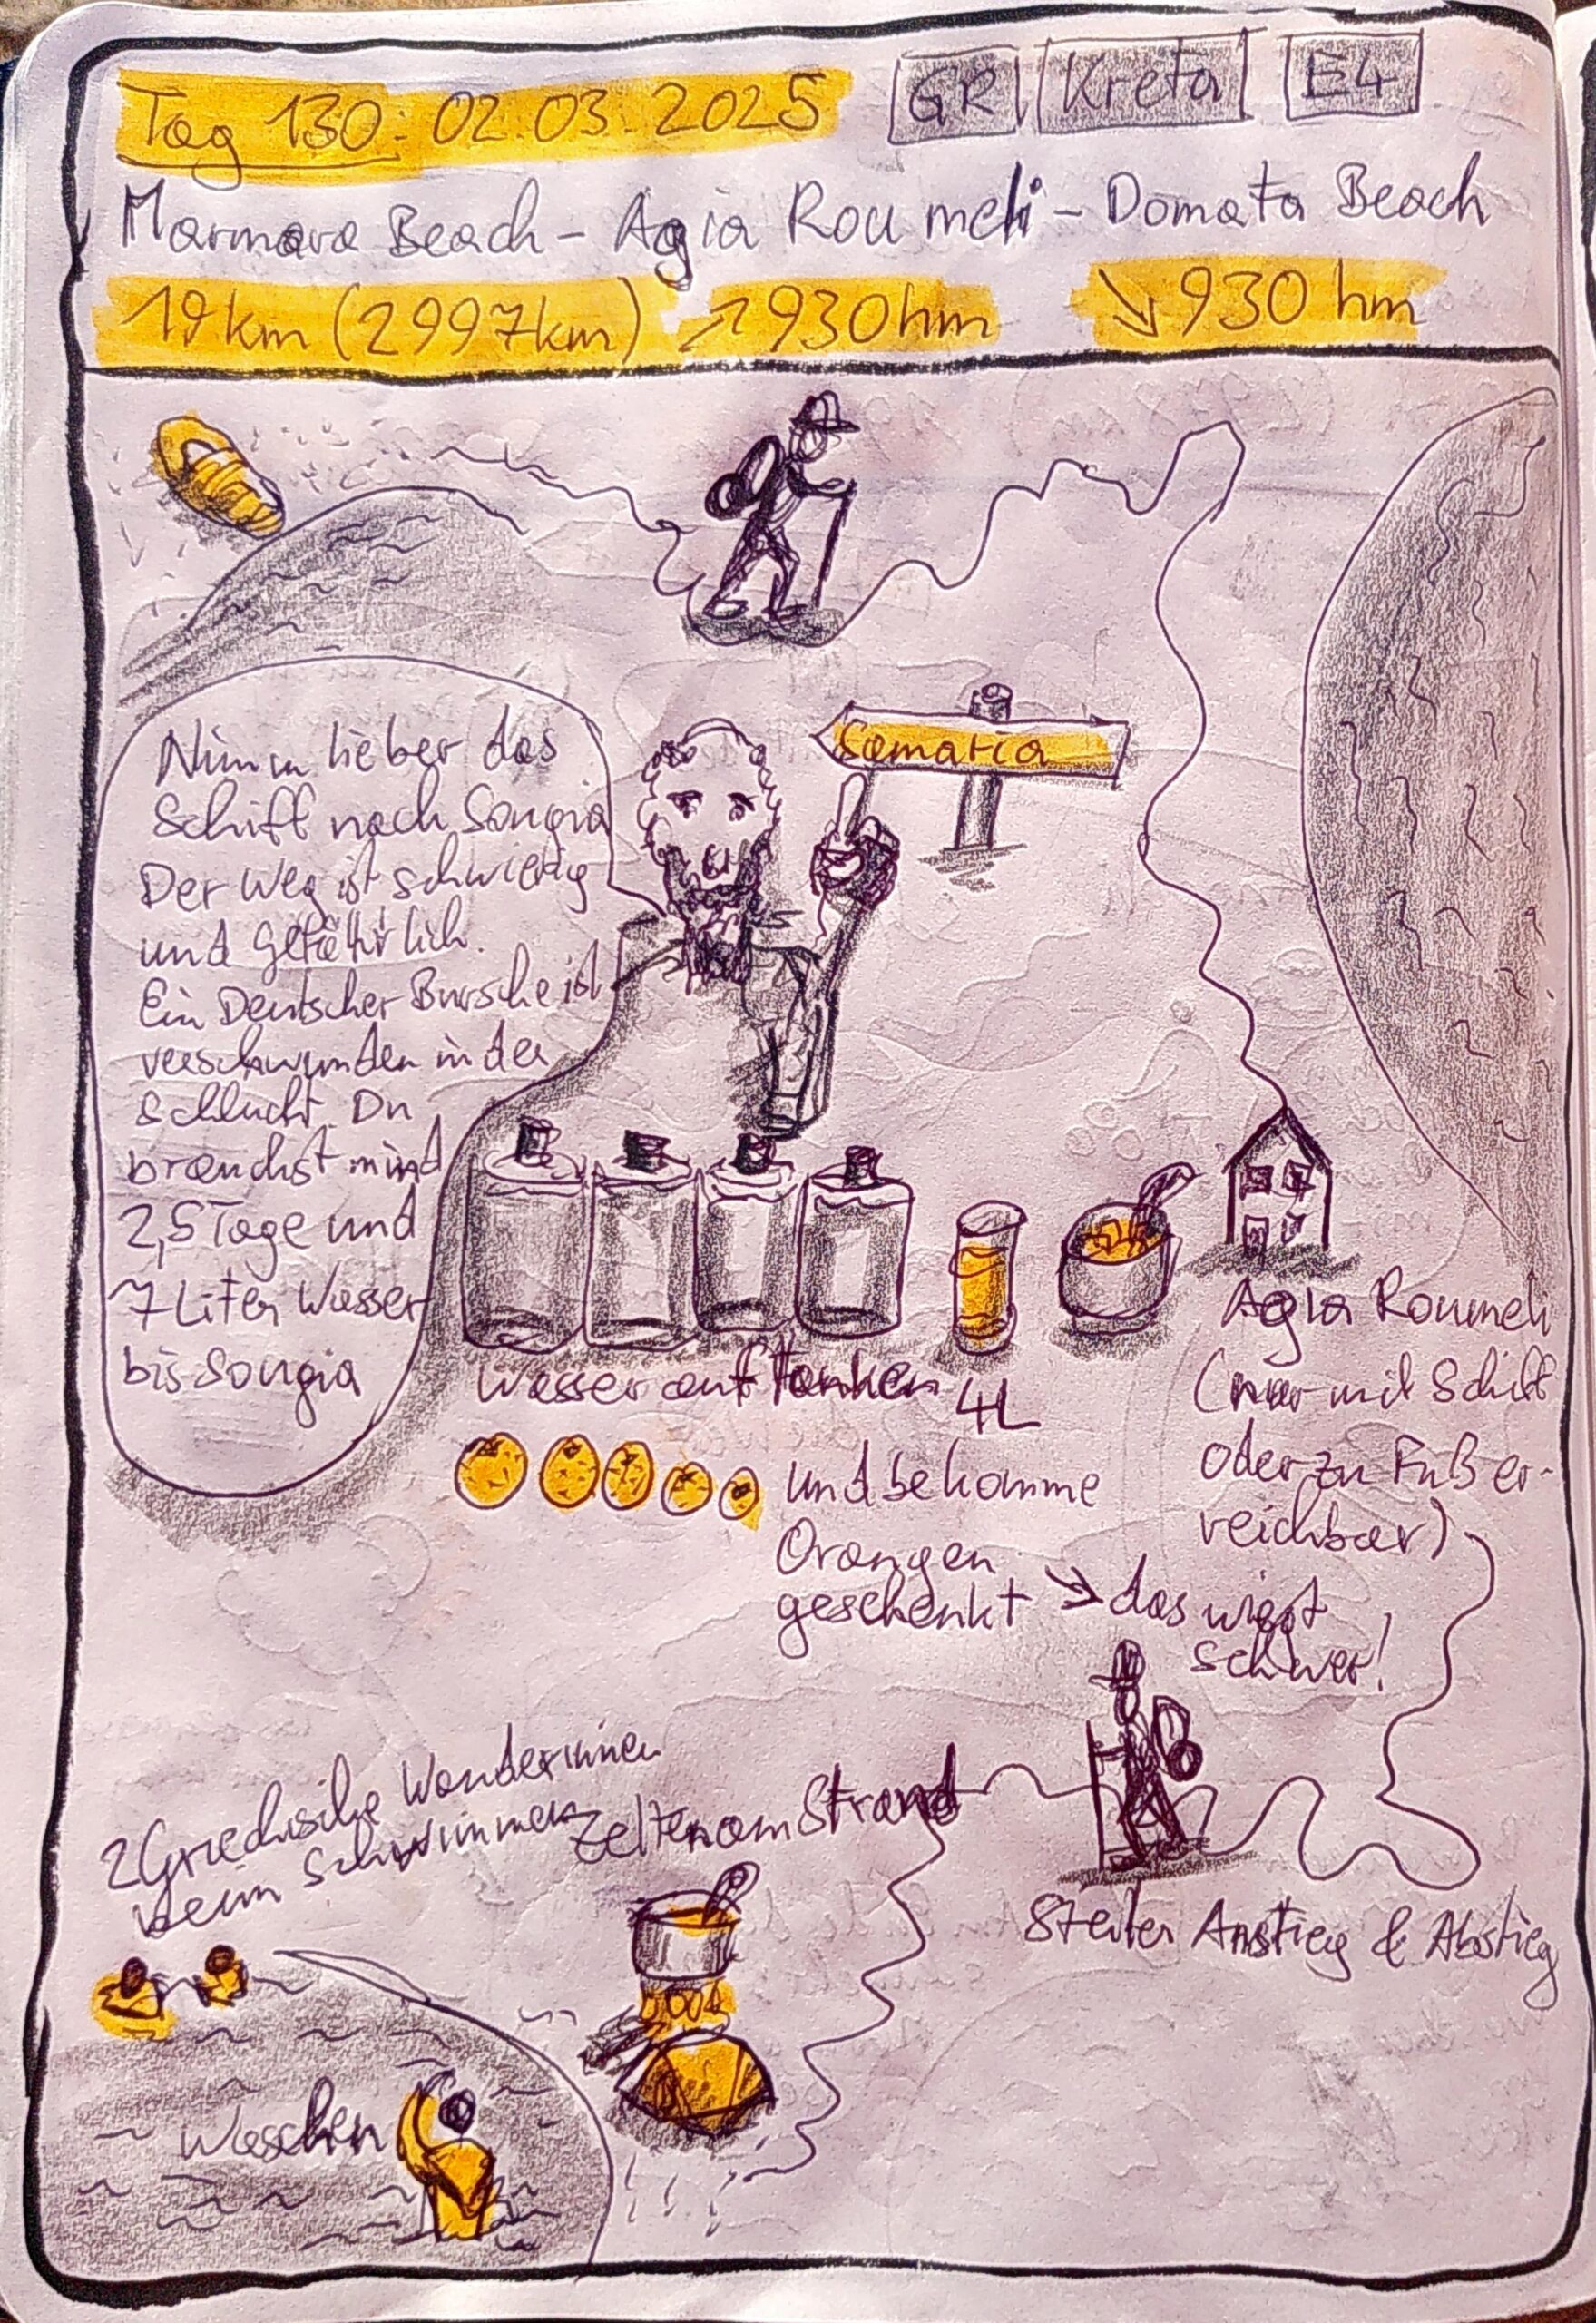 Tag 130: 02.03.2025
GR Kreta E4
Marmara Beach - Agia Roumeli - Domata Beach
19 km (2997km) ↗ 930hm ↘ 930 hm
Samaria
Nimm lieber das
Schiff nach Sougia
Der Weg ist schwierig
und gefährlich.
Ein Deutscher Bursche ist
verschwunden in der
Schlucht. Du
brauchst mind
2,5 Tage und
7 Liter Wasser
bis Sougia
Wasser auftanken 4L
und bekomme
Orangen
geschenkt → das wiegt
schwer!
Agia Roumeli
(nur mit Schiff
oder zu Fuß er-
reichbar)
Steiler Anstieg & Abstieg
Zelten am Strand
2 Griechische Wanderinnen
beim Schwimmen
Waschen